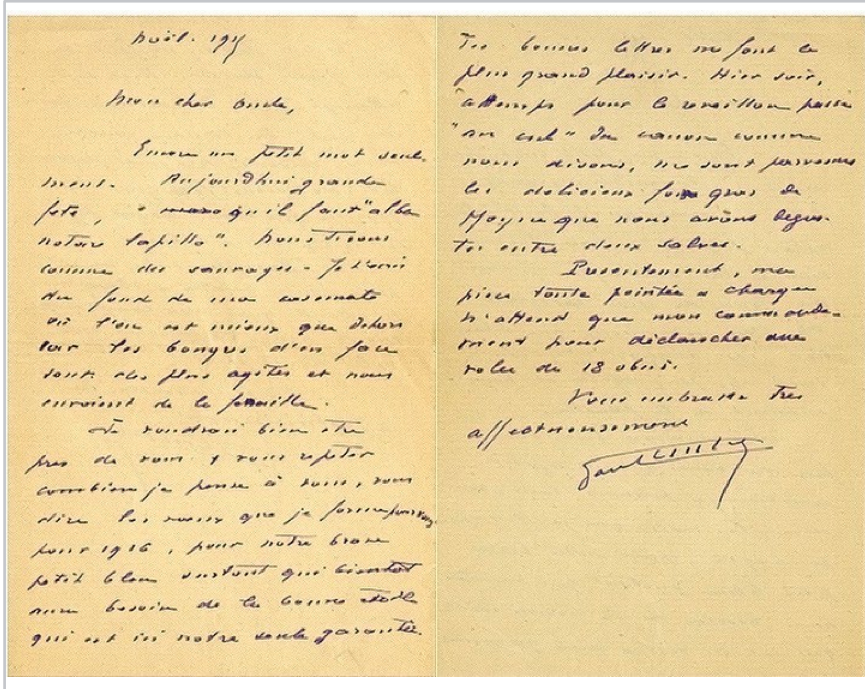 Noël. 1915
Mon cher Oncle,
Encore un petit mot seule-
ment. Aujourd'hui grande
fête, qu'il faut "albo
notare lapillo". Nous vivons
comme des sauvages. Je t'écris
du fond de ma casemate
où l'on est mieux que dehors
car les bougres d'en face
sont des plus agités et nous
envoient de la ferraille.
Je voudrais bien être
près de vous & vous répéter
combien je pense à vous, vous
dire les voeux que je forme pour vous
pour 1916, pour notre brave
petit bleu surtout qui bientôt
aura besoin de la bonne étoile
qui est ici notre seule garantie.
Tes bonnes lettres me font le
plus grand plaisir. Hier soir,
à temps pour le réveillon passé
"au cul" du canon comme
nous disons, me sont parvenus
les délicieux foies gras de
que nous avons dégus-
tés entre deux salves.
Présentement, ma
pièce toute pointée & chargée
n'attend que mon commande-
ment pour déclancher une
rafale de 18 obus.
Vous embrasse très
affectueusement
Paul